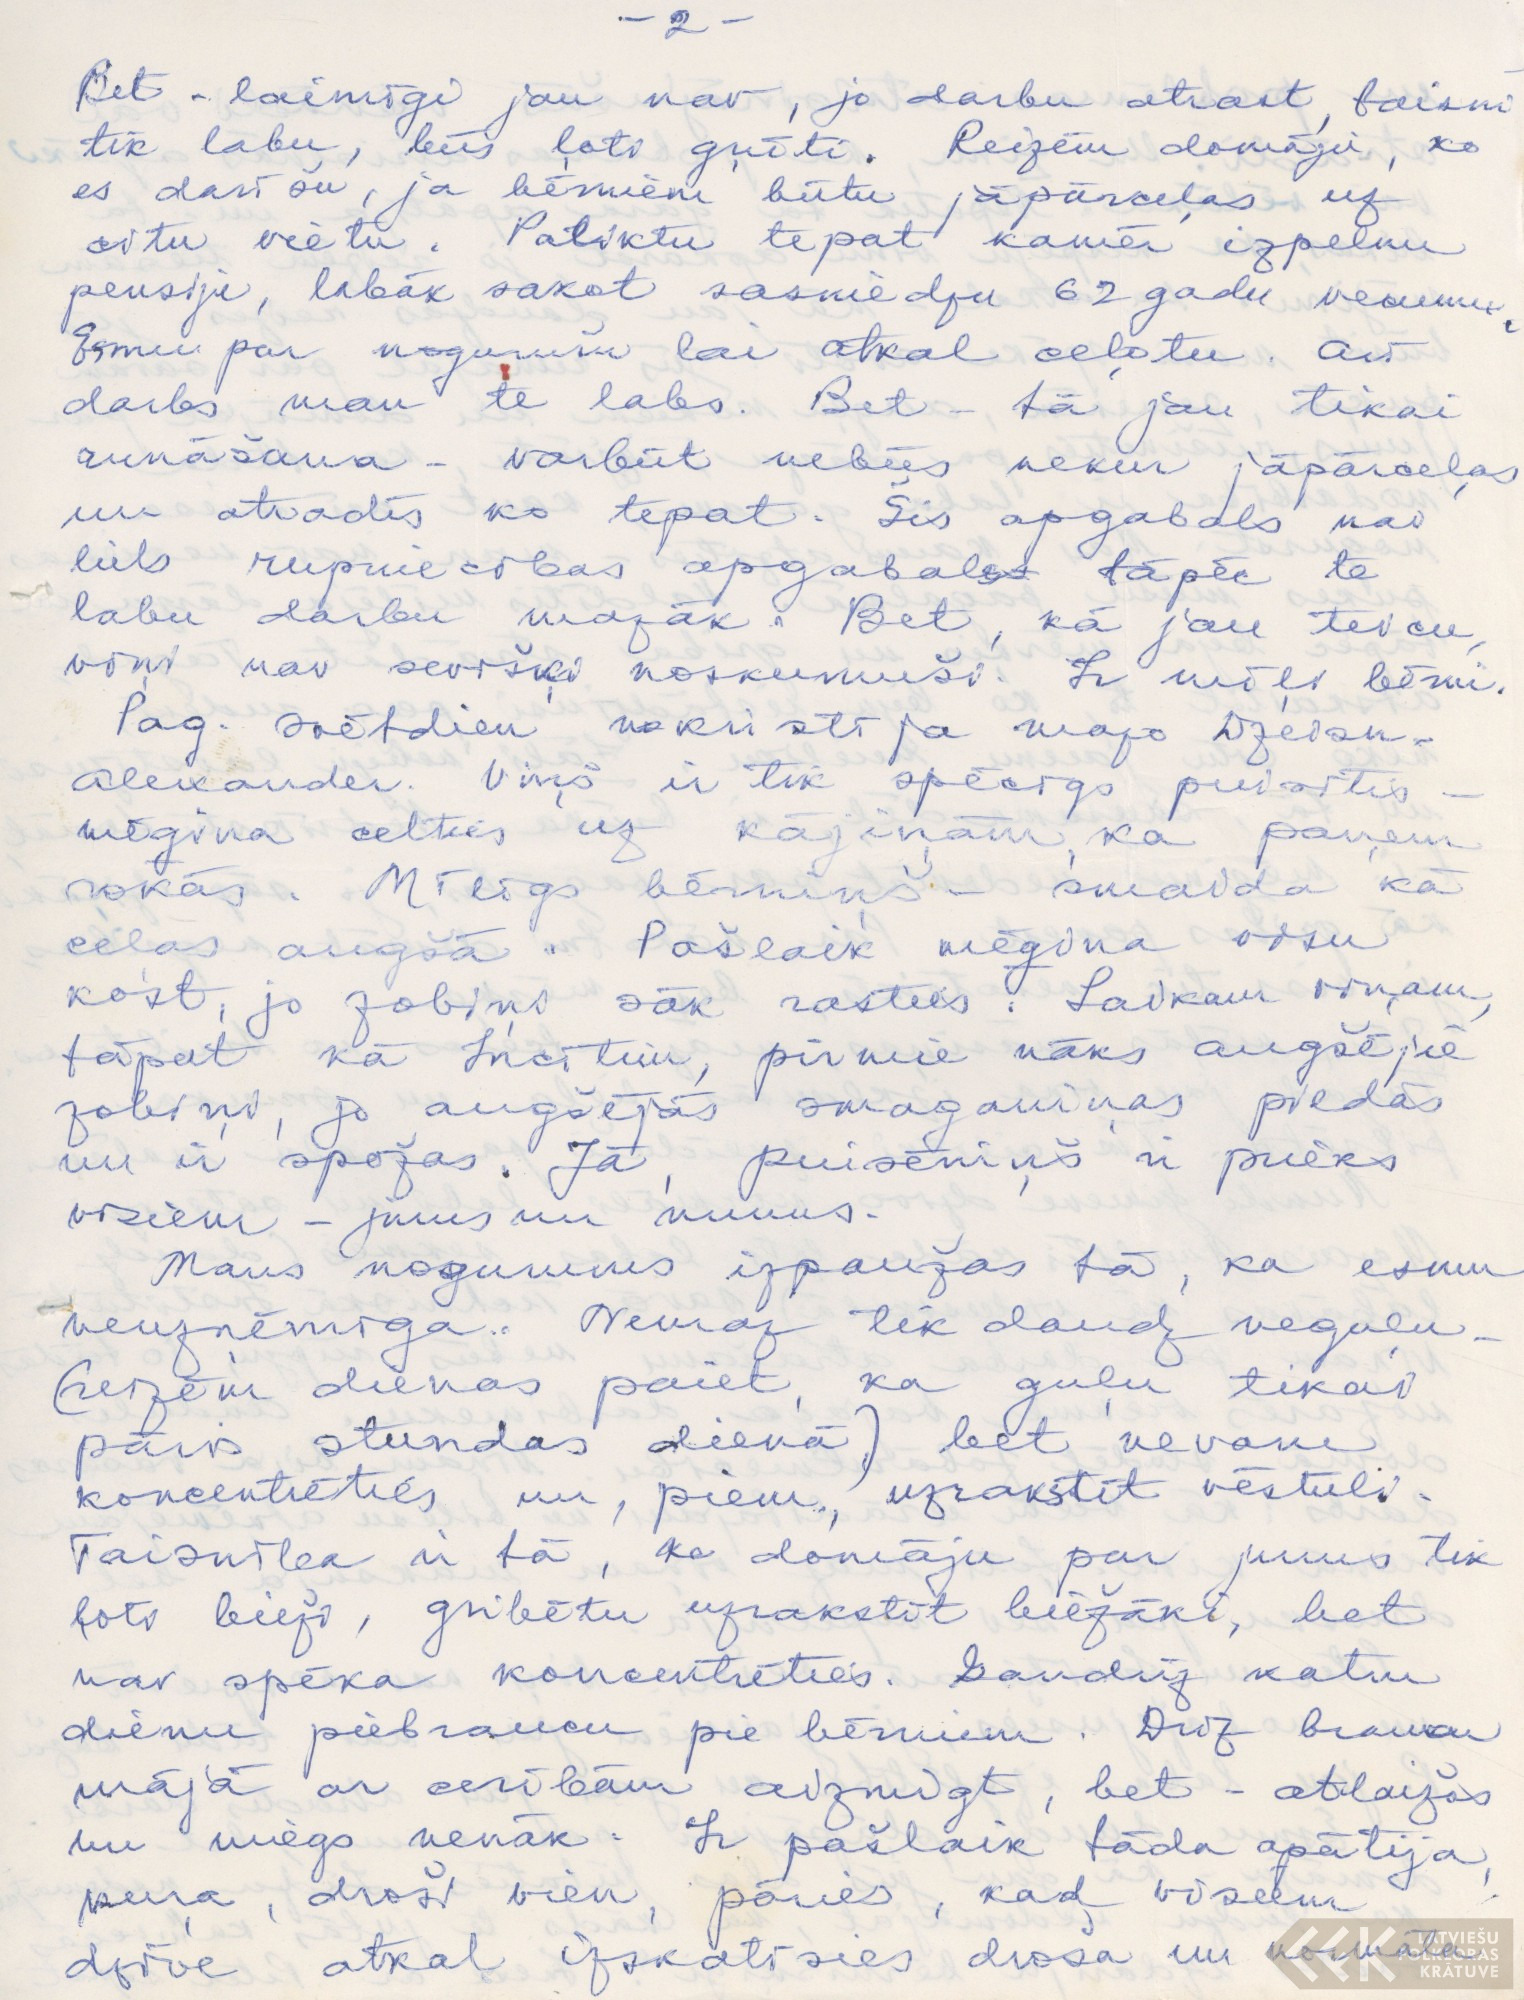 - 2 -
Bet - laimīgi jau nav, jo darbu atrast, taisni
tik labu, būs ļoti grūti. Reizēm domāju, ko
es darīšu, ja bērniem būtu jāpārceļas uz
citu vietu. Patiktu tepat kamēr izpelnu
pensiju, labāk sakot sasniedzu 62 gadu vecumu.
Esmu par nogurušu lai atkal ceļotu. Arī
darbs man te labs. Bet - tā jau tikai
runāšana - varbūt nebūs nekur jāpārceļas
un atradīs ko tepat. Šis apgabals nav
liels rūpniecības apgabals tāpēc te
labu darbu mazāk. Bet, kā jau teicu,
viņi nav sevišķi noskumuši. Ir mīļi bērni.
Pag. svētdien nokristīja mazo Džeisn-
Alexander. Viņš ir tik spēcīgs puisītis -
mēģina celties uz kājiņām, ka paņem
rokās. Mīlīgs bērniņš - smaida kā
ceļas augšā. Pašlaik mēģina visu
kost, jo zobiņi sāk rasties. Laikam viņam,
tāpat kā Incītim, pirmie nāks augšējie
zobiņi, jo augšējās smaganiņas piedās
un ir spožas. Jā, puisēniņš ir prieks
visiem - jums un mums.
Mans nogurums izpaužas tā, ka esmu
neuzņēmīga. Nemaz tik daudz neguļu -
(reizēm dienas paiet, ka guļu tikai
pāris stundas dienā) bet nevaru
koncentrēties un, piem., uzrakstīt vēstuli.
Taisnība ir tā, ka domāju par jums tik
ļoti bieži, gribētu uzrakstīt biežāki, bet
nav spēka koncentrēties. Gandrīz katru
dienu piebraucu pie bērniem. Drīz braucu
mājā ar cerībām aizmigt, bet - atlaižos
un miegs nenāk. Ir pašlaik tāda apātija,
kuŗa, droši vien, pāries, kad visiem
dzīve atkal izskatīsies droša un normāla.
LATVIEŠU
FOLKLORAS
KRĀTUVE